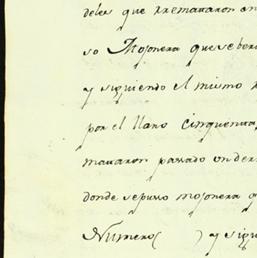 deles que rremataron en
so Mojonera que se bor
y siguiendo el mismo
por el llano cinquenta,
mataron pasado un der
donde se puso mojonera q
Numero( ) y sigu